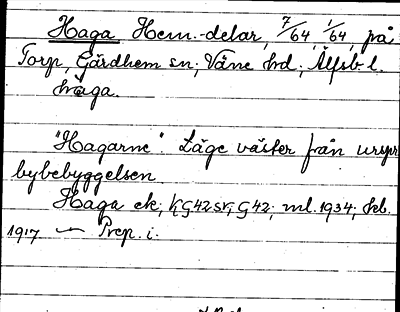 Haga Hem.-delar, 7/64, 1/64, på
Torp, Gärdhem sn; Väne hd; Älfsb. l.
håga.
"Hagarne". Läge väster från urspr
bybebyggelsen
Haga ek; G42 sv; G42; ml. 1934; 
1917 — Prep. i.